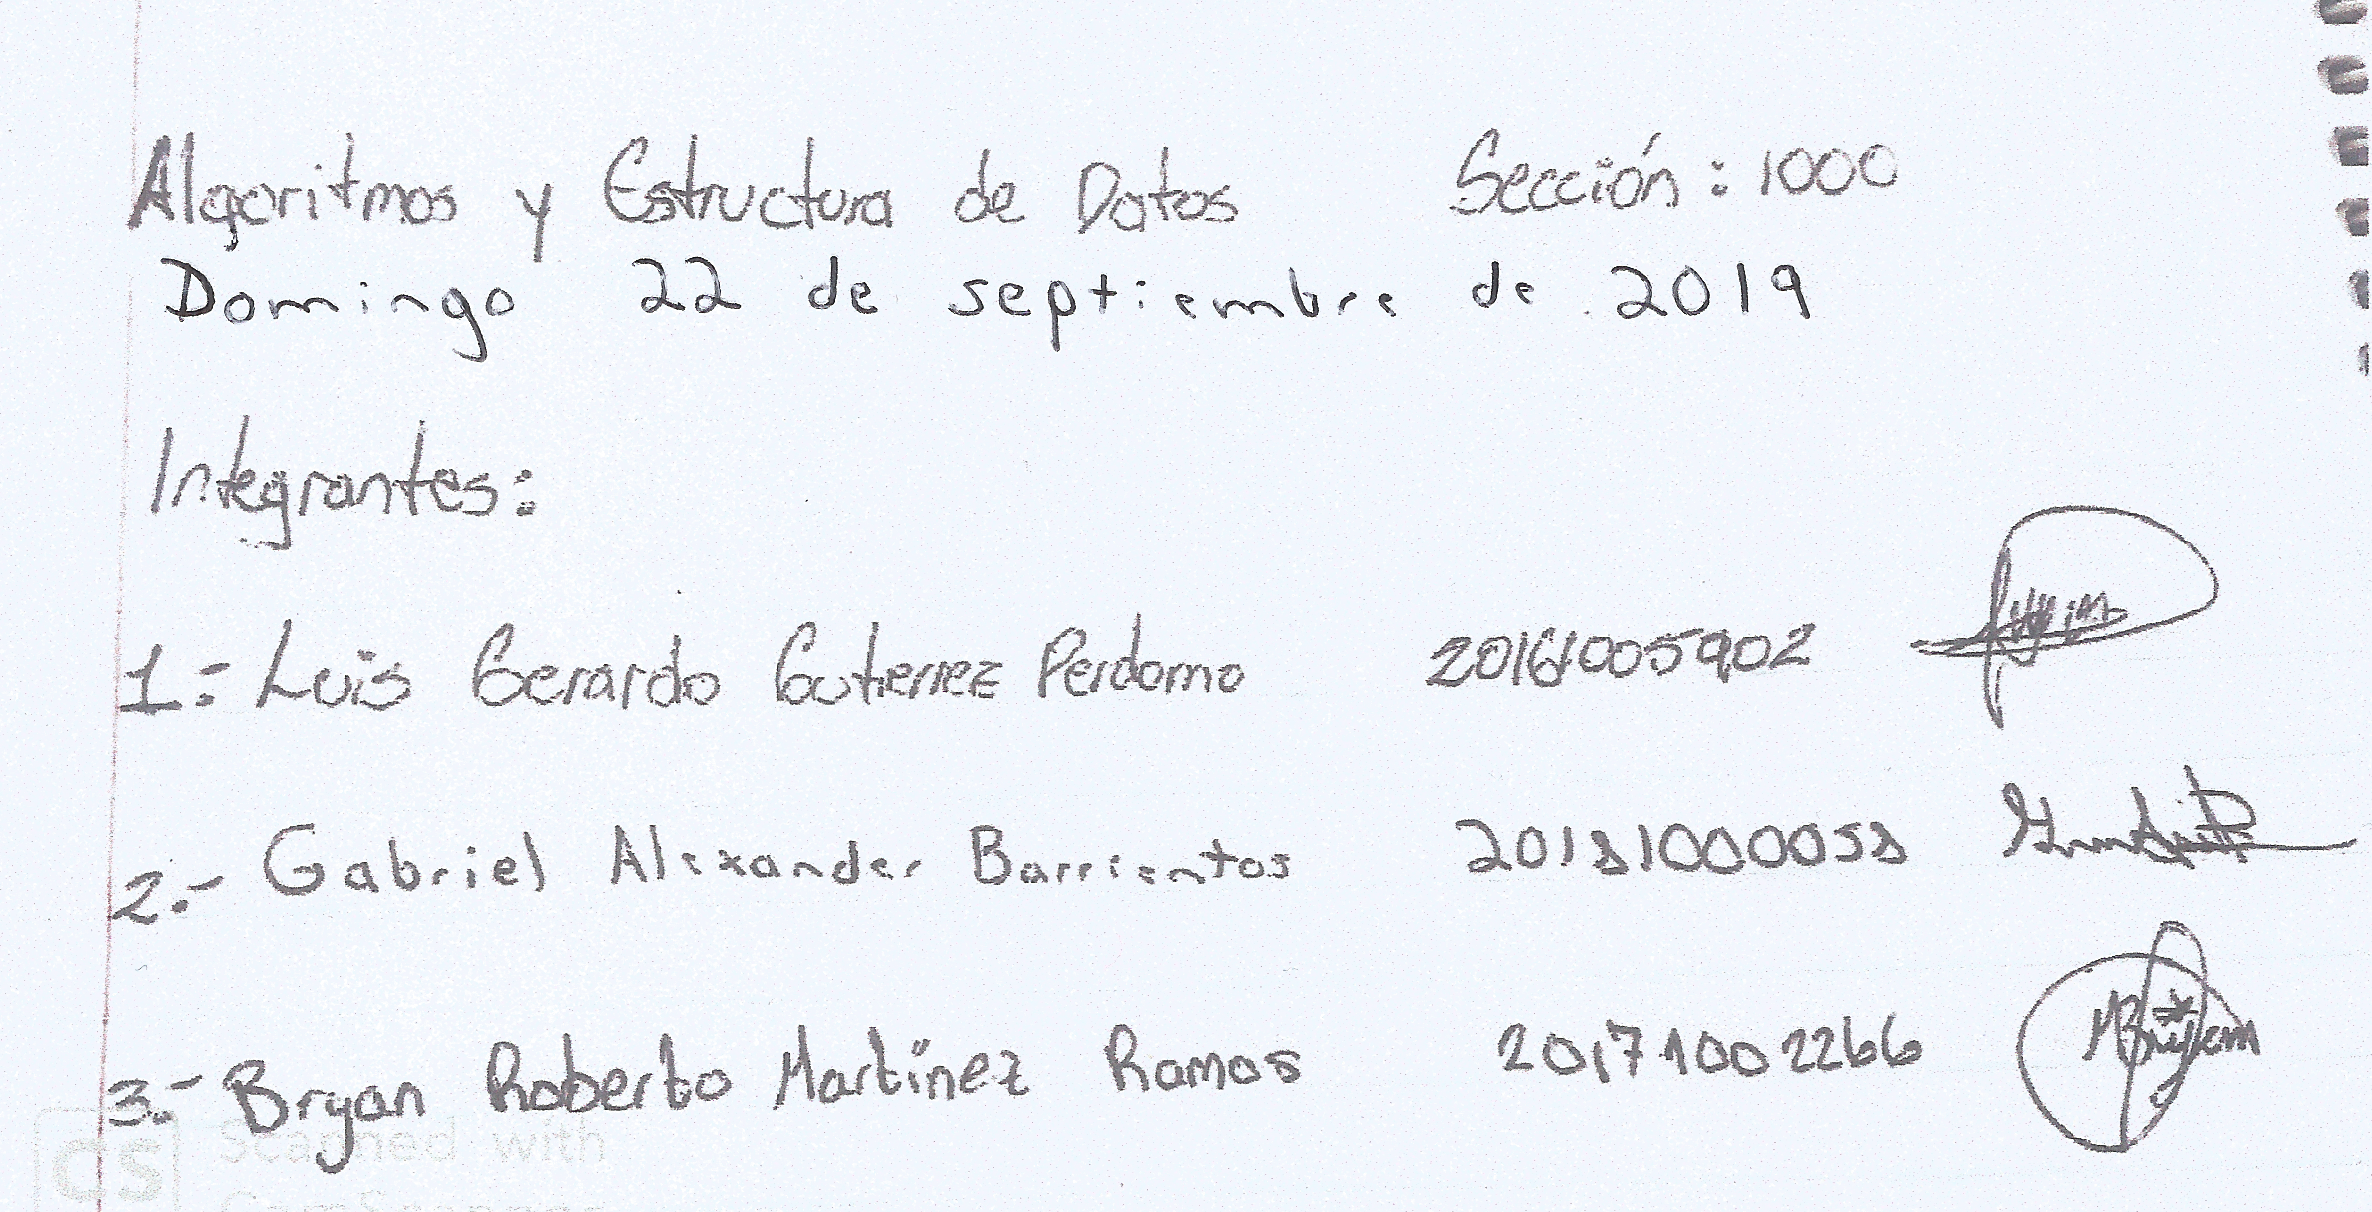 Algoritmos y Estructura de Datos Sección: 1000
Domingo 22 de septiembre de 2019
Integrantes:
1.- Luis Gerardo Gutierrez Perdomo 20161005902
2.- Gabriel Alexander Barrientos 20181000058
3.- Bryan Roberto Martínez Ramos 20171002266
CS Scanned with
CamScanner